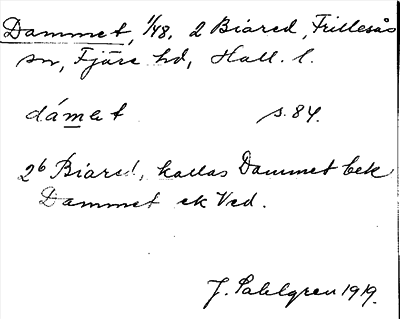 Dammet, 1/48. 2 Biared, Frillesås
sn, Fjäre hd, Hall. l.
dámet s. 84.
2b Biared, kallas Dammet bek
Dammet ek Ved.
J. Sahlgren 1919.